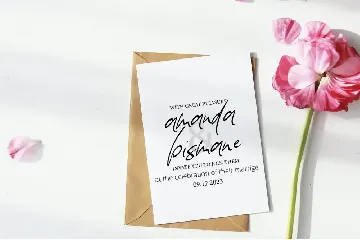 WITH GREAT PLEASURE
amanda
&
bismane
INVITE YOU TO JOIN THEM
at the celebration of their marrige
09.12.2023